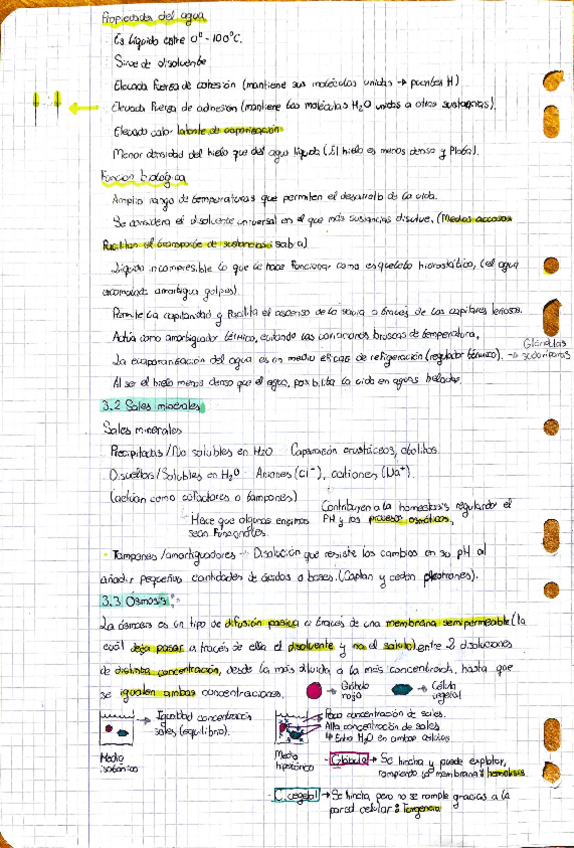 Propiedades del agua
Es líquido entre 0º - 100ºC.
Sirve de disolvente
Elevada fuerza de cohesión (mantiene sus moléculas unidas → puentes H)
Elevada fuerza de adhesión (mantiene las moléculas H₂O unidas a otras sustancias).
Elevado calor latente de vaporización
Menor densidad del hielo que del agua líquida (El hielo es menos denso y flota).
Función biológica
Amplio rango de temperaturas que permiten el desarrollo de la vida.
Se considera el disolvente universal en el que más sustancias disuelve. (Medios acuosos
facilitan el transporte de sustancias: sabia)
Líquido incompresible lo que le hace funcionar como esqueleto hidrostático, (el agua
acumulada amortigua golpes).
Permite la capilaridad y facilita el ascenso de la savia a través de los capilares leñosos.
Actúa como amortiguador térmico, evitando las variaciones bruscas de temperatura.
La evaporanización del agua es un medio eficaz de refrigeración (regulador térmico). → Glándulas sudoríparas
Al ser el hielo menos denso que el agua, posibilita la vida en aguas heladas.
3.2 Sales minerales
Sales minerales
Precipitadas / No solubles en H₂O Caparazón crustáceos, otolitos.
Disueltas / Solubles en H₂O Aniones (Cl⁻), cationes (Na⁺).
(actúan como cofactores o tampones)
Hace que algunas enzimas sean funcionales.
Contribuyen a la homeostasis regulando el
PH y los procesos osmóticos.
Tampones / amortiguadores → Disolución que resiste los cambios en su pH al
añadir pequeñas cantidades de ácidos o bases. (Captan y ceden protones).
3.3 Ósmosis
La ósmosis es un tipo de difusión pasiva a través de una membrana semipermeable (la
cuál deja pasar a través de ella el disolvente y no el soluto) entre 2 disoluciones
de distinta concentración, desde la más diluida a la más concentrada, hasta que
se igualen ambas concentraciones.
→ Glóbulo rojo
→ Célula vegetal
→ Igualdad concentración
sales (equilibrio).
Medio
isotónico
Poca concentración de sales.
Alta concentración de sales
↳ Entra H₂O en ambas células
Medio
hipotónico
Glóbulo → Se hincha y puede explotar,
rompiendo la membrana: hemólisis.
C. vegetal → Se hincha, pero no se rompe gracias a la
pared celular: Turgencia